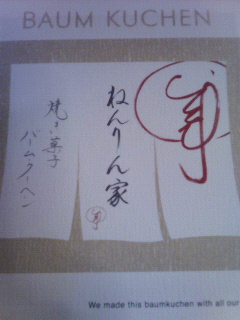 BAUM KUCHEN
ねんりん家
焼き菓子
バームクーヘン
We made this baumkuchen with all our